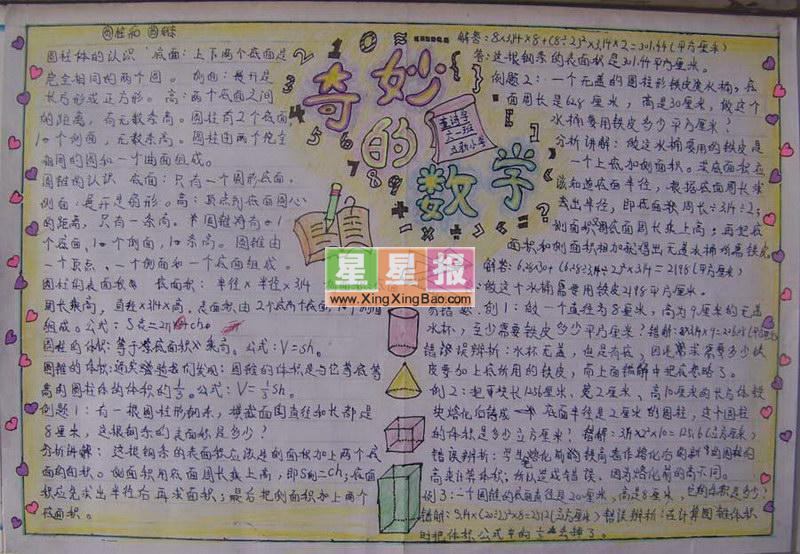 圆柱和圆锥
圆柱体的认识 底面：上下两个底面是
完全相同的两个圆。侧面：展开是
长方形或正方形。高：两个底面之间
的距离，有无数条高。圆柱有2个底面
1个侧面，无数条高。圆柱由两个完全
相同的圆和一个曲面组成。
圆锥的认识 底面：只有一个圆形底面。
侧面：展开是扇形。高：顶点到底面圆心
的距离，只有一条高。圆锥有1
个底面，1个侧面，1条高。圆锥由
一个顶点、一个侧面和一个底面组成。
圆柱的表面积 底面积：半径×半径×3.14
周长乘高，直径×3.14×高，表面积由2个底面
组成。公式：
圆柱的体积：等于底面积乘高。公式：V=sh。
圆锥的体积：通过实验我们发现：圆锥的体积是与它等底等
高的圆柱体的体积的1/3。公式：V=1/3sh。
例题1：有一根圆柱形钢条，横截面的直径和长都是
8厘米，这根钢条的表面积是多少？
分析讲解：这根钢条的表面积应该是侧面积加上两个底
面的面积。侧面积用底面周长乘上高，即S侧=Ch；底面
积应先求出半径后再求面积；最后把侧面积加上两个
底面积。
奇妙
的
数学
星星报
www.XingXingBao.com
解答：8×3.14×8+(8÷2)²×3.14×2=301.44(平方厘米)
答：这根钢条的表面积是301.44平方厘米。
例题2：一个无盖的圆柱形铁皮水桶，底
面周长是62.8厘米，高是30厘米，做这个
水桶要用铁皮多少平方厘米？
分析讲解：做这水桶要用的铁皮是
一个上底加侧面积。求底面积应
该知道底面半径，根据底面周长求
去出半径，即底面周长÷3.14÷2；
侧面积用底面周长乘上高；再把底
面积和侧面积相加就得出无盖水桶所需铁皮
解答：
做这个水桶需要用铁皮2198平方厘米。
例1：做一个直径为8厘米，高为9厘米的无盖
水杯，至少需要铁皮多少平方厘米？错解：
错误辨析：水杯无盖，但是有底，因此需求需要多少铁
皮要加上底所用的铁皮，而上面错解中把底忽略了。
例2：把一个长12.56厘米、宽2厘米、高10厘米的长方体铁
块熔化后铸成一个底面半径是2厘米的圆柱，这个圆柱
的体积是多少立方厘米？错解：3.14×2²×10=125.6(立方厘米)
错误辨析：
高来计算体积，所以造成错误，因为熔化前后高不同。
例3：一个圆锥的底面直径是20厘米，高是8厘米，它的体积是多少？
错解：3.14×(20÷2)²×8=2512(立方厘米) 错误辨析：在计算圆锥体积
时把体积公式中的1/3丢掉了。